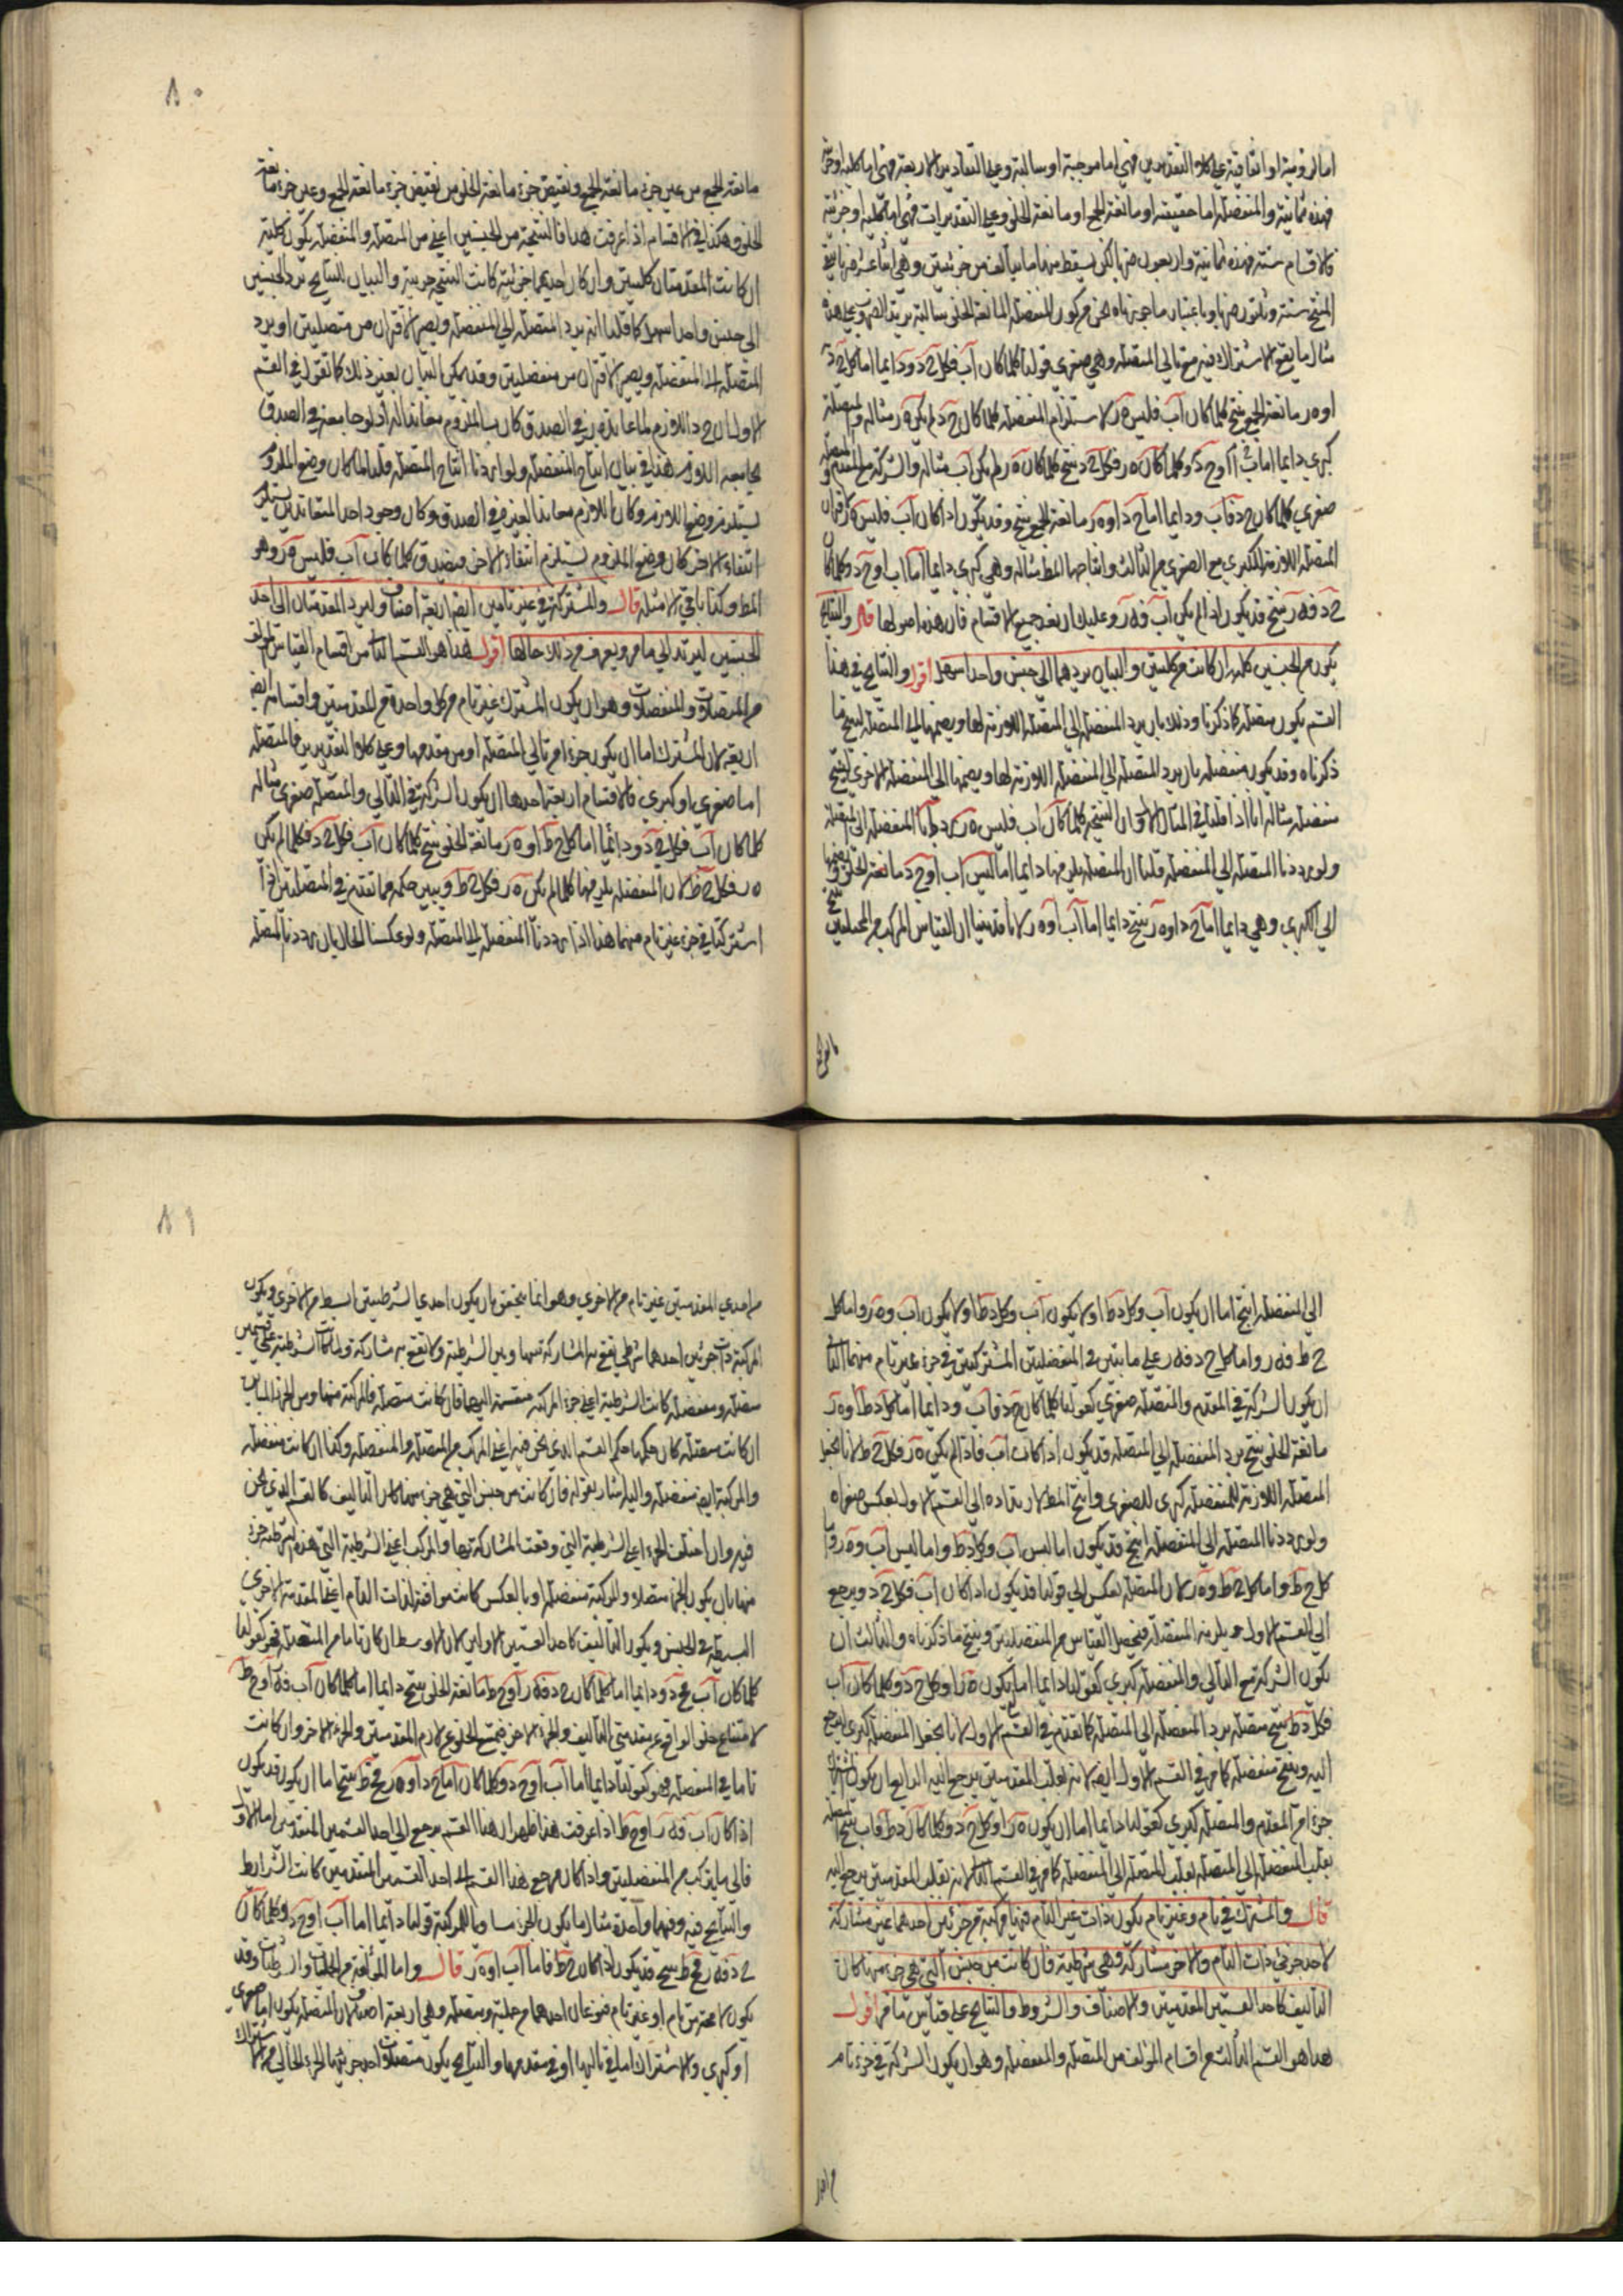 اما لزومية او اتفاقية وعلى كلا التقديرين فهي اما موجبة او سالبة وعلى التقادير الاربعة فهي اما كلية او جزئية
فهذه ثمانية والمنفصلة اما حقيقية او مانعة الجمع او مانعة الخلو وعلى التقديرات فهي اما كلية او جزئية
فالاقسام ستة فهذه ثمانية واربعون ضربا لكن يسقط منها ما يتألف من جزئيتين وهي اثنا عشر ضربا يبقى
المنتج ستة وثلثون ضربا وباعتبار ما جوزناه نحن من كون المنفصلة المانعة الخلو سالبة يزيد الضروب على هذه
مثال ما يقع الاشتراك فيه مع تالي المتصلة وهي صغرى قولنا كلما كان آب فكل ج د ودايما اما كل ج د
او ه ر مانعة الجمع ينتج كلما كان آب فليس ه ر لاستلزام المنفصلة كلما كان ج د لم يكن ه ر مثاله والمتصلة
كبرى دايما اما آب او ج د وكلما كان ه ر فكل ج د ينتج كلما كان ه ر لم يكن آب مثاله والشركة مع المقدم والمتصلة
صغرى كلما كان ج د فآب ودايما اما ج د او ه ر مانعة الجمع ينتج قد يكون اذا كان آب فليس ه ر لاقتران
المتصلة اللازمة للكبرى مع الصغرى من الثالث وانتاجهما المط مثاله وهي كبرى دايما اما آب او ج د وكلما كان
ج د فه ر ينتج قد يكون اذا لم يكن آب فه ر وعليك ان تعد جميع الاقسام فان هذه اصولها قال والنتايج
يكون من الجنسين كلية ان كانت من كليتين والبيان بردهما الى جنس واحد اسهل اقول والنتايج في هذا
القسم يكون متصلة كما ذكرنا وذلك بان يرد المنفصلة الى المتصلة اللازمة لها ويضمها الى المتصلة لينتج ما
ذكرناه وقد يكون منفصلة بان يرد المتصلة الى المنفصلة اللازمة لها ويضمها الى المنفصلة الاخرى لينتج
منفصلة مثاله انا اذا قلنا في المثال الاول ان النتيجة كلما كان آب فليس ه ر رددنا المنفصلة الى المتصلة
ولو رددنا المتصلة الى المنفصلة قلنا ان المتصلة يلزمها دايما اما ليس آب او ج د مانعة الخلو ويضمها
الى الكبرى وهي دايما اما ج د او ه ر ينتج دايما اما آب او ه ر لانا قد بينا ان القياس المركب من المختلفين ينتج
مانعة الجمع من عين جزء مانعة الجمع ونقيض جزء مانعة الخلو من نقيض جزء مانعة الجمع وعين جزء مانعة
الخلو وهكذا في الاقسام اذا عرفت هذا فالنتيجة من الجنسين اعني من المتصلة والمنفصلة يكون كلية
ان كانت المقدمتان كليتين وان كان احديهما جزئية كانت النتيجة جزئية والبيان للنتايج برد الجنسين
الى جنس واحد اسهل كما قلنا انه يرد المتصلة الى المنفصلة ويصير الاقتران من متصلتين او يرد
المتصلة الى المنفصلة ويصير الاقتران من منفصلتين وقد يمكن البيان بغير ذلك كما تقول في القسم
الاول ان ج د اللازم لما عانده ه ر في الصدق كان آب الملزوم معاندا له اذ لو جامعه في الصدق
لجامعه اللازم هذا في بيان انتاج المنفصلة ولو اردنا انتاج المتصلة قلنا لما كان وضع الملزوم
يستلزم وضع اللازم وكان اللازم معاندا لغيره في الصدق وكان وجود احد المتعاندين يستلزم
انتفاء الاخر كان وضع الملزوم يستلزم انتفاء الاخر فيصدق كلما كان آب فليس ه ر وهو
المط وكذا باقي الامثلة قال والمشتركة في غير تامين ايضا اربعة اصناف وليرد المقدمتان الى احد
الجنسين ليرتد الى ما مر ويعرف من ذلك حالها اقول هذا هو القسم الثاني من اقسام القياس المؤلف
من المتصلات والمنفصلات وهو ان يكون المشترك غير تام من كل واحدة من المقدمتين واقسامه ايضا
اربعة لان المشترك اما ان يكون جزءا من تالي المتصلة او من مقدمها وعلى كلا التقديرين فالمتصلة
اما صغرى او كبرى فالاقسام اربعة احدها ان يكون الشركة في التالي والمتصلة صغرى مثاله
كلما كان آب فكل ج د ودائما اما كل ج ط او ه ر مانعة الخلو ينتج كلما كان آب فكل ج د فكلما لم يكن
ه ر فكل ج ط لان المنفصلة يلزمها كلما لم يكن ه ر فكل ج ط ويبين حكمه مما تقدم في المتصلتين اذا
اشتركتا في جزء غير تام منهما هذا اذا رددنا المنفصلة الى المتصلة ولو عكسنا الحال بان رددنا المتصلة
الى المنفصلة انتج اما ان يكون آب وكل د ط او لا يكون آب وكل د ط او لا يكون آب وه ر واما كل
ج ط فه ر واما كل ج د فه ر على ما بين في المنفصلتين المشتركتين في جزء غير تام منهما الثاني
ان يكون الشركة في المقدم والمتصلة صغرى كقولنا كلما كان ج د فآب ودايما اما كل د ط او ه ر
مانعة الخلو ينتج برد المنفصلة الى المتصلة قد يكون اذا كان آب فاذا لم يكن ه ر فكل ج ط لانا نجعل
المتصلة اللازمة للمنفصلة كبرى للصغرى وانتج المط لارتداده الى القسم الاول بعكس صغراه
ولو رددنا المتصلة الى المنفصلة انتج قد يكون اما ليس آب وكل د ط واما ليس آب وه ر واما
كل ج ط واما كل ج ط وه ر لان المتصلة تعكس الى قولنا قد يكون اذا كان آب فكل ج د ويرجع
الى القسم الاول ويلزمه المنفصلة فيحصل القياس من المنفصلتين وينتج ما ذكرناه والثالث ان
يكون الشركة مع التالي والمنفصلة كبرى كقولنا دايما اما ان يكون ه ر او كل ج د وكلما كان آب
فكل د ط ينتج متصلة برد المنفصلة الى المتصلة كما تقدم في القسم الاول لانا نجعل المنفصلة كبرى ليرجع
اليه وينتج منفصلة كما مر في القسم الاول ايضا لانه بقلب المقدمتين يرجع اليه الرابع ان يكون المشترك
جزءا من المقدم والمتصلة كبرى كقولنا دايما اما ان يكون ه ر او كل ج د وكلما كان د ط فآب ينتج المتصلة
بقلب المنفصلة الى المتصلة بقلب المتصلة الى المنفصلة كما مر في القسم الثاني لانه بقلب المقدمتين يرجع اليه
قال والمشترك في تام وغير تام يكون ذات غير التام فيها مركبة من جزئين احدهما غير مشاركة
لاحد جزئي ذات التام والاخر مشاركة فهي شرطية فان كانت من جنس التي هي جزء منها كان
التاليف كاحد القسمين المقدمين والاصناف والشروط والنتايج على قياس ما مر اقول
هذا هو القسم الثالث من اقسام المؤلف من المتصلة والمنفصلة وهو ان يكون الشركة في جزء تام
من احدي المقدمتين غير تام من الاخري وهو انما يتحقق بان يكون احدي الشرطيتين ابسط من الاخري ويكون
المركبة ذات جزئين احدهما شرطي يقع به المشاركة بينها وبين الشرطية ولا يقع به مشاركة ولما كانت الشرطية على قسمين
متصلة ومنفصلة كانت الشرطية اعني جزء المركبة منقسمة اليهما فان كانت متصلة فالمركبة منها ومن الجزء المباين
ان كانت متصلة كان حكمها حكم القسم الذي نحن فيه اعني المركب من المتصلة والمنفصلة وكذا ان كانت منفصلة
والمركبة ايضا منفصلة واليه اشار بقوله فان كانت من جنس التي هي جزء منها كان التاليف كالقسم الذي نحن
فيه وان اختلف الجزء اعني الشرطية التي وقعت المشاركة بها والمركب اعني الشرطية التي هذه الشرطية جزء
منها بان يكون الجزء متصلا والمركبة منفصلة او بالعكس كانت موافقة لذات التام اعني المقدمة الاخرى
البسيطة في الجنس ويكون التاليف كاحد القسمين الاولين لان الاوسط ان كان تاما من المتصلة فهو كقولنا
كلما كان آب فج د ودايما اما كلما كان ج د فه ر او ج ط مانعة الخلو ينتج دايما اما كلما كان آب فه ر او ج ط
لامتناع خلو الواقع عن مقدمتي التاليف والجزء الاخر فيمتنع الخلو عن لازم المقدمتين والجزء الاخر وان كانت
تاما في المنفصلة فهو كقولنا دايما اما آب او ج د وكلما كان اما ج د او ه ر فج ط ينتج اما ان يكون قد يكون
اذا كان آب فه ر او ج ط اذا عرفت هذا ظهر ان هذا القسم يرجع الى احد القسمين المتقدمين اما الاول
فالى ما يتركب من المنفصلتين واذا كان مرجع هذا القسم الى احد القسمين المتقدمين كانت الشرايط
والنتايج فيه وفيهما واحدة مثال ما يكون الجزء مساويا للمركبة قولنا دائما اما آب او ج د وكلما كان
ج د فه ر فج ط ينتج قد يكون اذا كان ج ط فاما آب او ه ر قال واما المؤلفة من الحمليات والشرطيات وقد
يكون لا محة من تام او غير تام فنوعان احدهما من حملية ومتصلة وهي اربعة اصناف لان المتصلة يكون اما صغرى
او كبرى والاشتراك اما في تاليها او في مقدمها والنتايج يكون متصلات احد جزئيها الجزء الخالي من الاشتراك